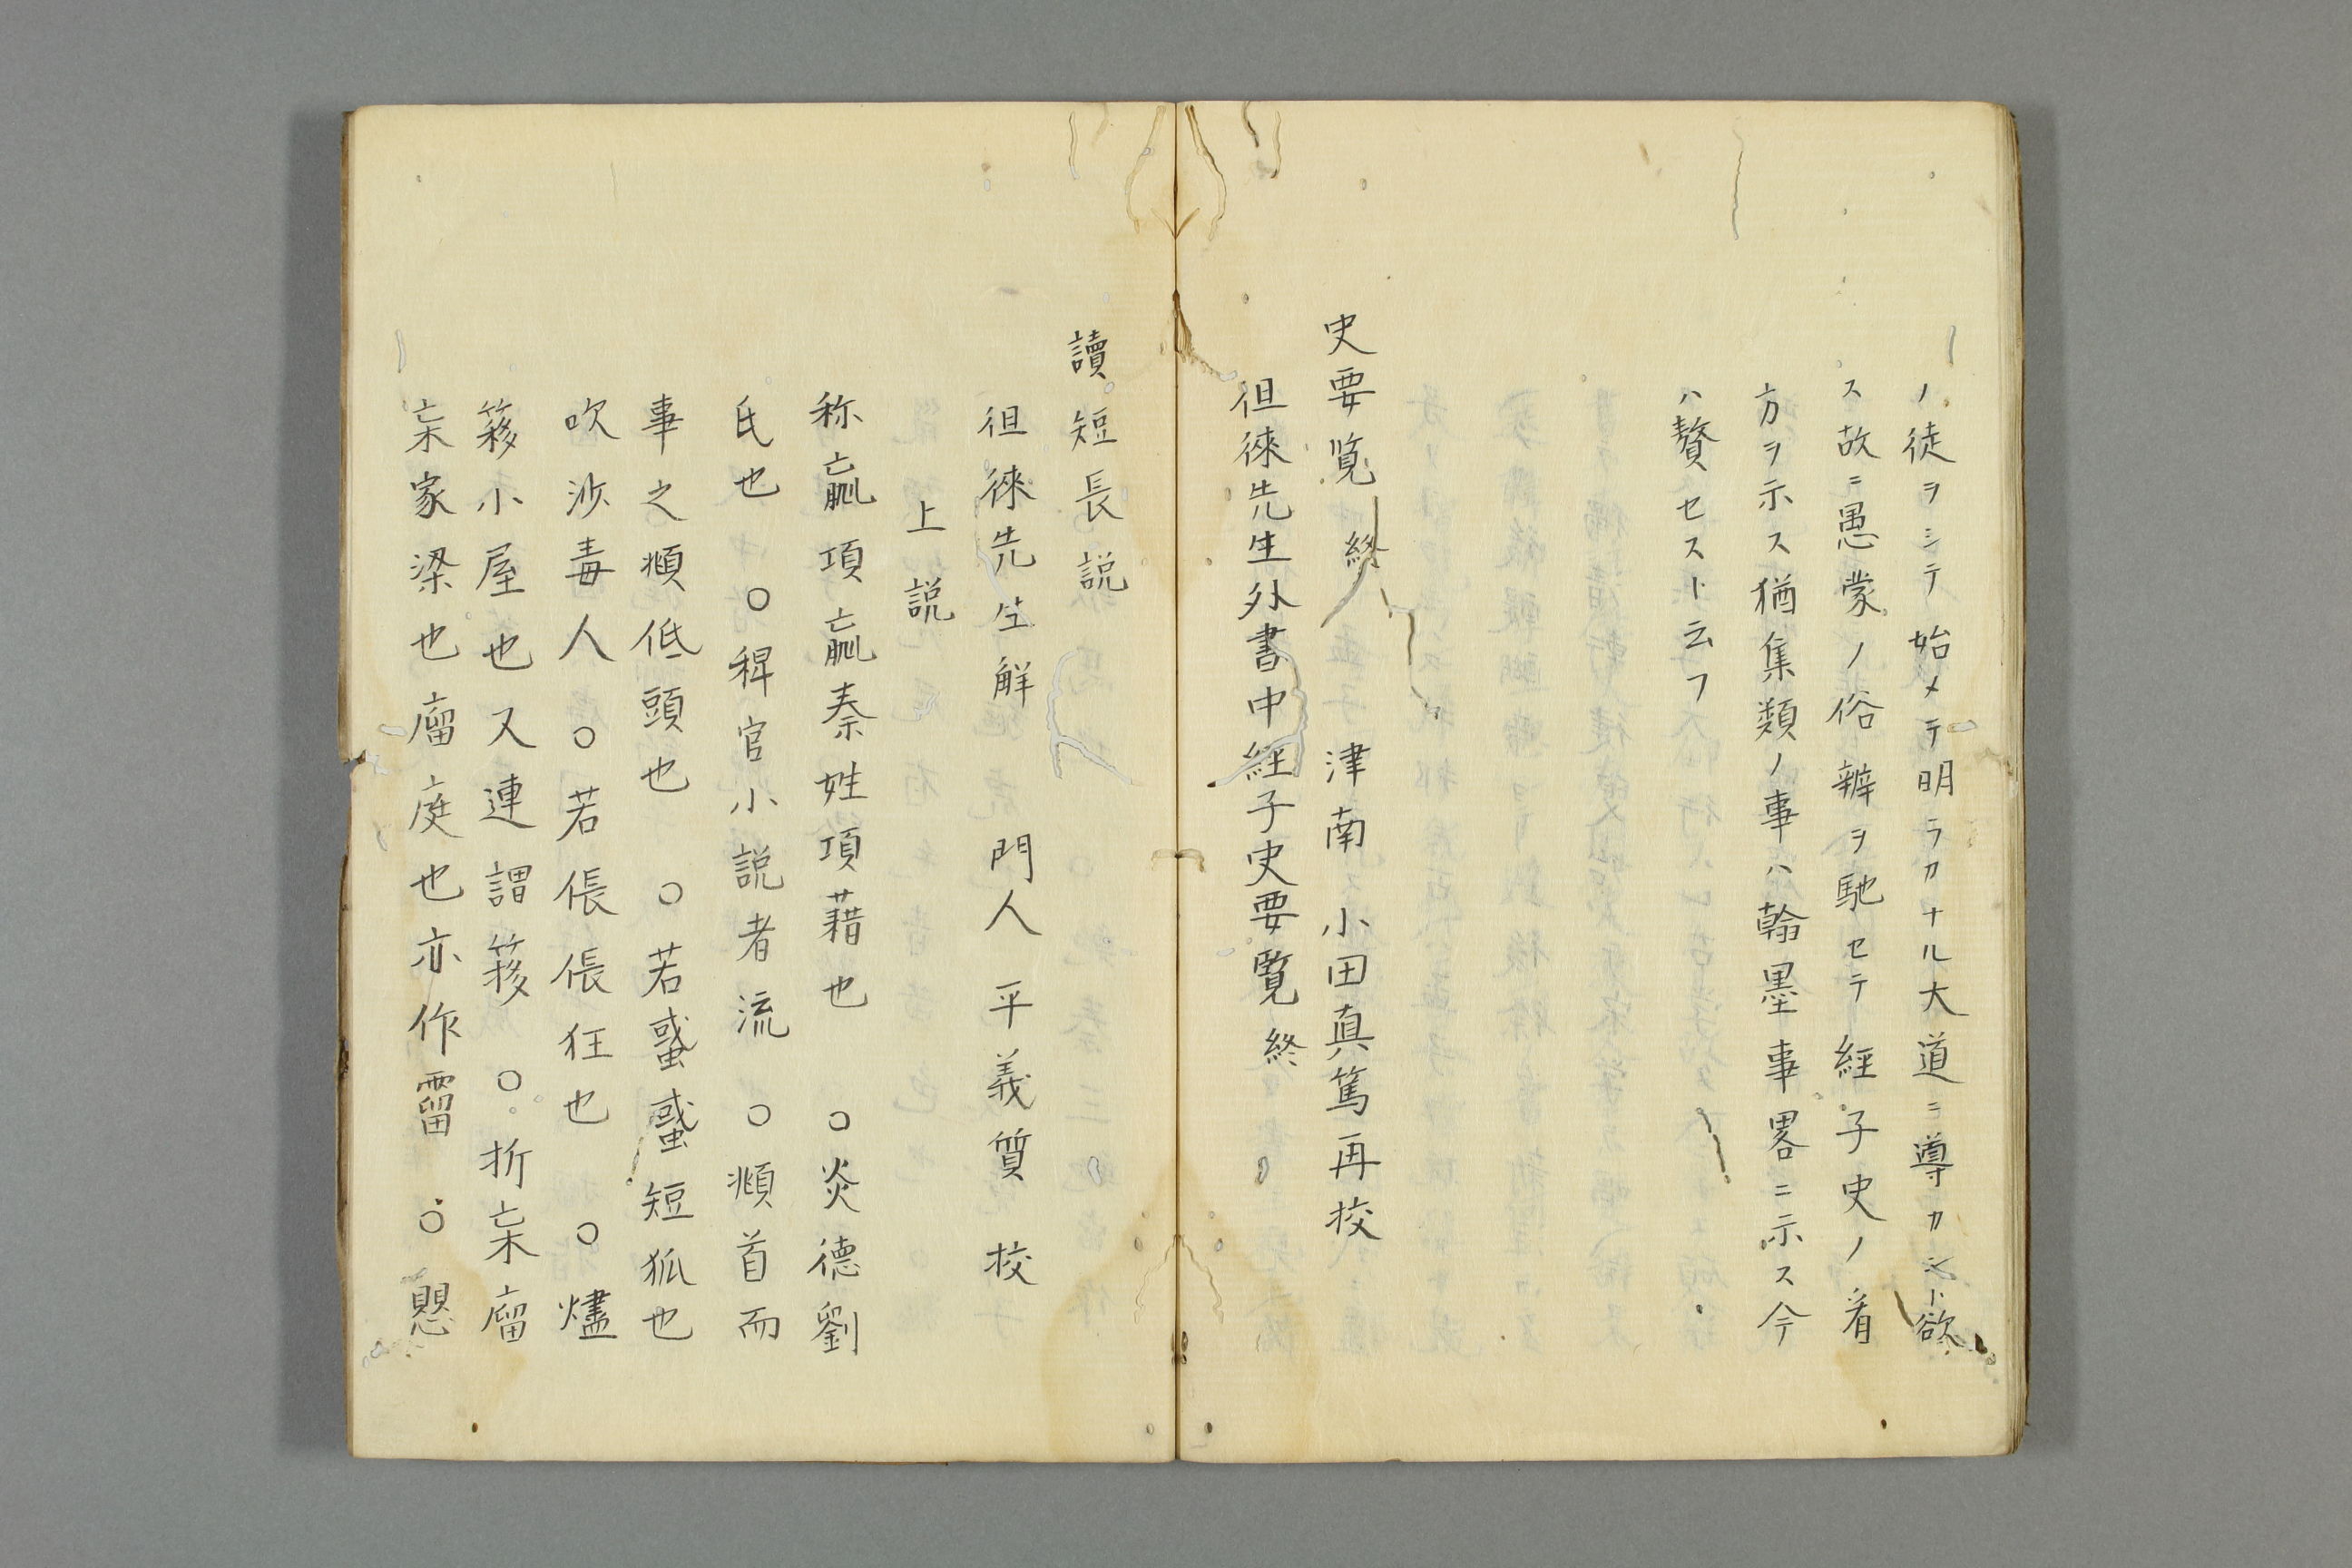 ノ徒ヲシテ始メテ明ラカナル大道ニ導カシト欲
ス故ニ愚蒙ノ俗辨ヲ馳セテ經子史ノ看
方ヲ示ス猶集類ノ事ハ翰墨事畧ニ示ス今
ハ贅セスト云フ
史要覧終　津南小田真篤再挍
徂徠先生外書中経子史要覽終
讀短長説
徂徠先生解　門人平義質挍
上説
称嬴項嬴秦姓項藉也　○炎德劉
氏也　○稗官小説者流　○頫首而
事之頫低頭也　○若蜮蜮短狐也
吹沙毒人　○若倀倀狂也　○爐
簃小屋也又連謂簃　○折杗廇
杗家梁也廇庭也亦作霤　○愳